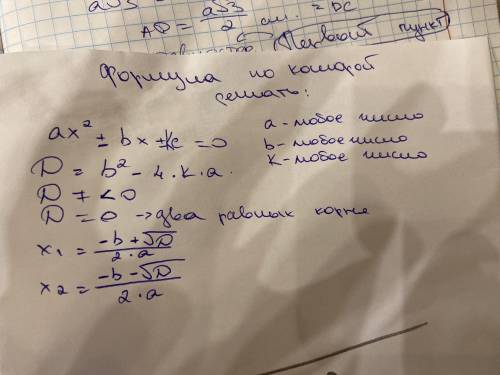 a√3
AD = a√3/2 см. = DC
Первый пункт
Формула по которой
решать:
ax² ± bx ± k = 0
a - любое число
b - любое число
k - любое число
D = b² - 4·k·a.
D ≠ < 0
D = 0 → два равных корня
x₁ = -b + √D / 2·a
x₂ = -b - √D / 2·a